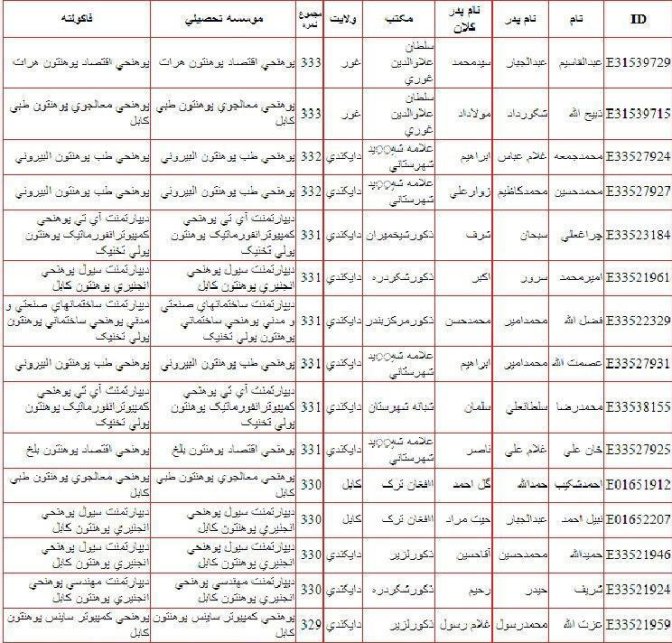 ID نام نام پدر نام پدر کلان مکتب ولایت مجموع نمره موسسه تحصیلي فاکولته
E31539729 عبدالقاسیم عبدالجبار سیدمحمد سلطان علاوالدین غوري غور 333 پوهنحي اقتصاد پوهنتون هرات پوهنحي اقتصاد پوهنتون هرات
E31539715 ذبیح الله شکورداد مولاداد سلطان علاوالدین غوري غور 333 پوهنحي معالجوي پوهنتون طبي کابل پوهنحي معالجوي پوهنتون طبي کابل
E33527924 محمدجمعه غلام عباس ابراهیم علامه شهید شهرستاني دایکندي 332 پوهنحي طب پوهنتون البیروني پوهنحي طب پوهنتون البیروني
E33527927 محمدحسین محمدکاظیم زوارعلي علامه شهید شهرستاني دایکندي 332 پوهنحي طب پوهنتون البیروني پوهنحي طب پوهنتون البیروني
E33523184 چراغعلي سبحان شرف ذکورشیخمیران دایکندي 331 دیپارتمنت آي تي پوهنحي کمپیوترانفورماتیک پوهنتون پولي تخنیک دیپارتمنت آي تي پوهنحي کمپیوترانفورماتیک پوهنتون پولي تخنیک
E33521961 امیرمحمد سرور اکبر ذکورشگردره دایکندي 331 دیپارتمنت سیول پوهنحي انجنیري پوهنتون کابل دیپارتمنت سیول پوهنحي انجنیري پوهنتون کابل
E33522329 فضل الله محمدامیر محمدحسن ذکورمرکزبندر دایکندي 331 دیپارتمنت ساختمانهاي صنعتي و مدني پوهنحي ساختماني پوهنتون پولي تخنیک دیپارتمنت ساختمانهاي صنعتي و مدني پوهنحي ساختماني پوهنتون پولي تخنیک
E33527931 عصمت الله محمدامیر ابراهیم علامه شهید شهرستاني دایکندي 331 پوهنحي طب پوهنتون البیروني پوهنحي طب پوهنتون البیروني
E33538155 محمدرضا سلطانعلي سلمان شبانه شهرستان دایکندي 331 دیپارتمنت آي تي پوهنحي کمپیوترانفورماتیک پوهنتون پولي تخنیک دیپارتمنت آي تي پوهنحي کمپیوترانفورماتیک پوهنتون پولي تخنیک
E33527925 خان علي غلام علي ناصر علامه شهید شهرستاني دایکندي 331 پوهنحي اقتصاد پوهنتون بلخ پوهنحي اقتصاد پوهنتون بلخ
E01651912 احمدشکیب حمدالله گل احمد افغان ترک کابل 330 پوهنحي معالجوي پوهنتون طبي کابل پوهنحي معالجوي پوهنتون طبي کابل
E01652207 نبیل احمد عبدالجبار حیت مراد افغان ترک کابل 330 دیپارتمنت سیول پوهنحي انجنیري پوهنتون کابل دیپارتمنت سیول پوهنحي انجنیري پوهنتون کابل
E33521946 حمیدالله محمدحسین آقاحسین ذکورلزیر دایکندي 330 دیپارتمنت سیول پوهنحي انجنیري پوهنتون کابل دیپارتمنت سیول پوهنحي انجنیري پوهنتون کابل
E33521924 شریف حیدر رحیم ذکورشگردره دایکندي 330 دیپارتمنت مهندسي پوهنحي انجنیري پوهنتون کابل دیپارتمنت مهندسي پوهنحي انجنیري پوهنتون کابل
E33521959 عزت الله محمدرسول غلام رسول ذکورلزیر دایکندي 329 پوهنحي کمپیوتر ساینس پوهنتون کابل پوهنحي کمپیوتر ساینس پوهنتون کابل